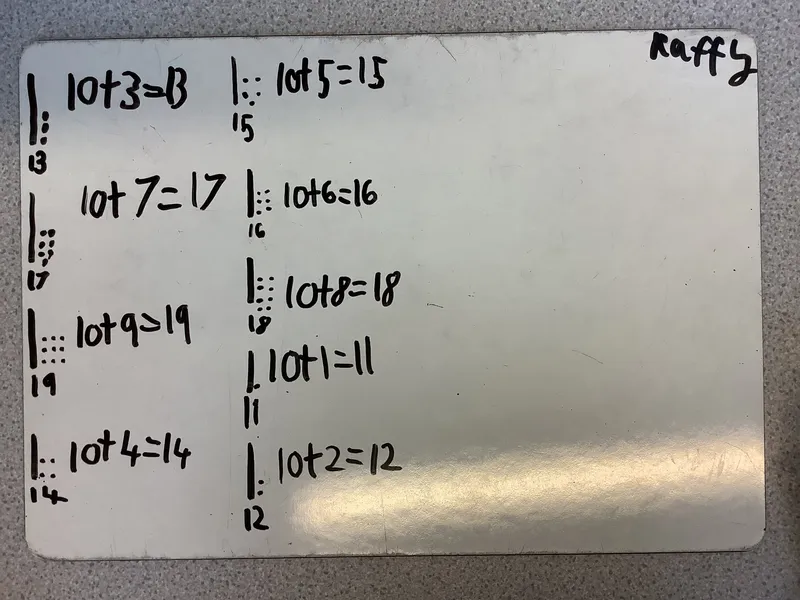 Raffy
10+3=13
13
10+7=17
17
10+9=19
19
10+4=14
14
10+5=15
15
10+6=16
16
10+8=18
18
10+1=11
11
10+2=12
12